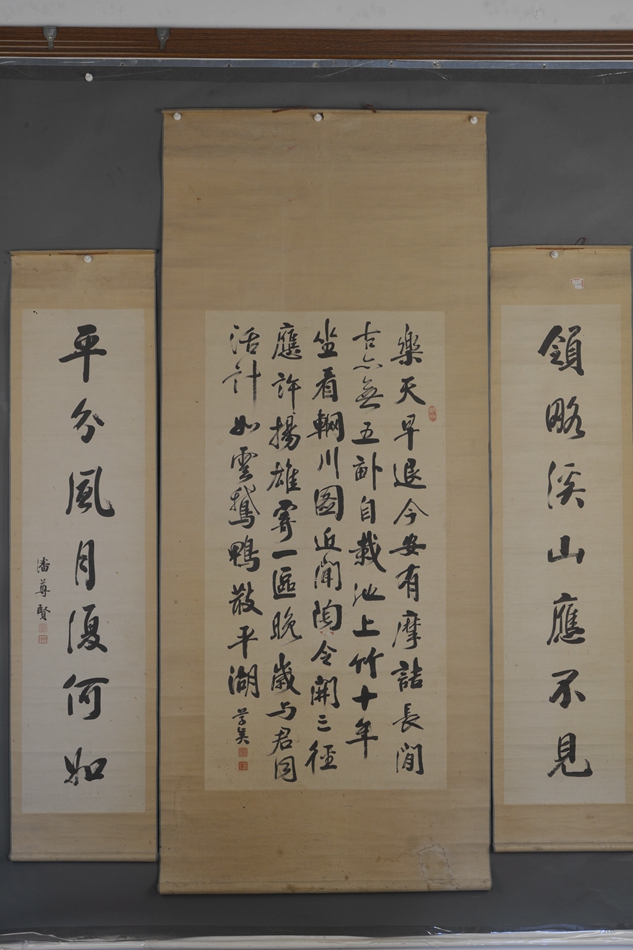 領略溪山應不見
樂天早退今安有摩詰長閒
古亦無五畝自栽池上竹十年
坐看輞川圖近聞陶令開三徑
應許揚雄寄一區晚歲与君同
活計如雲鵝鴨散平湖
平分風月復何如
潘尊賢